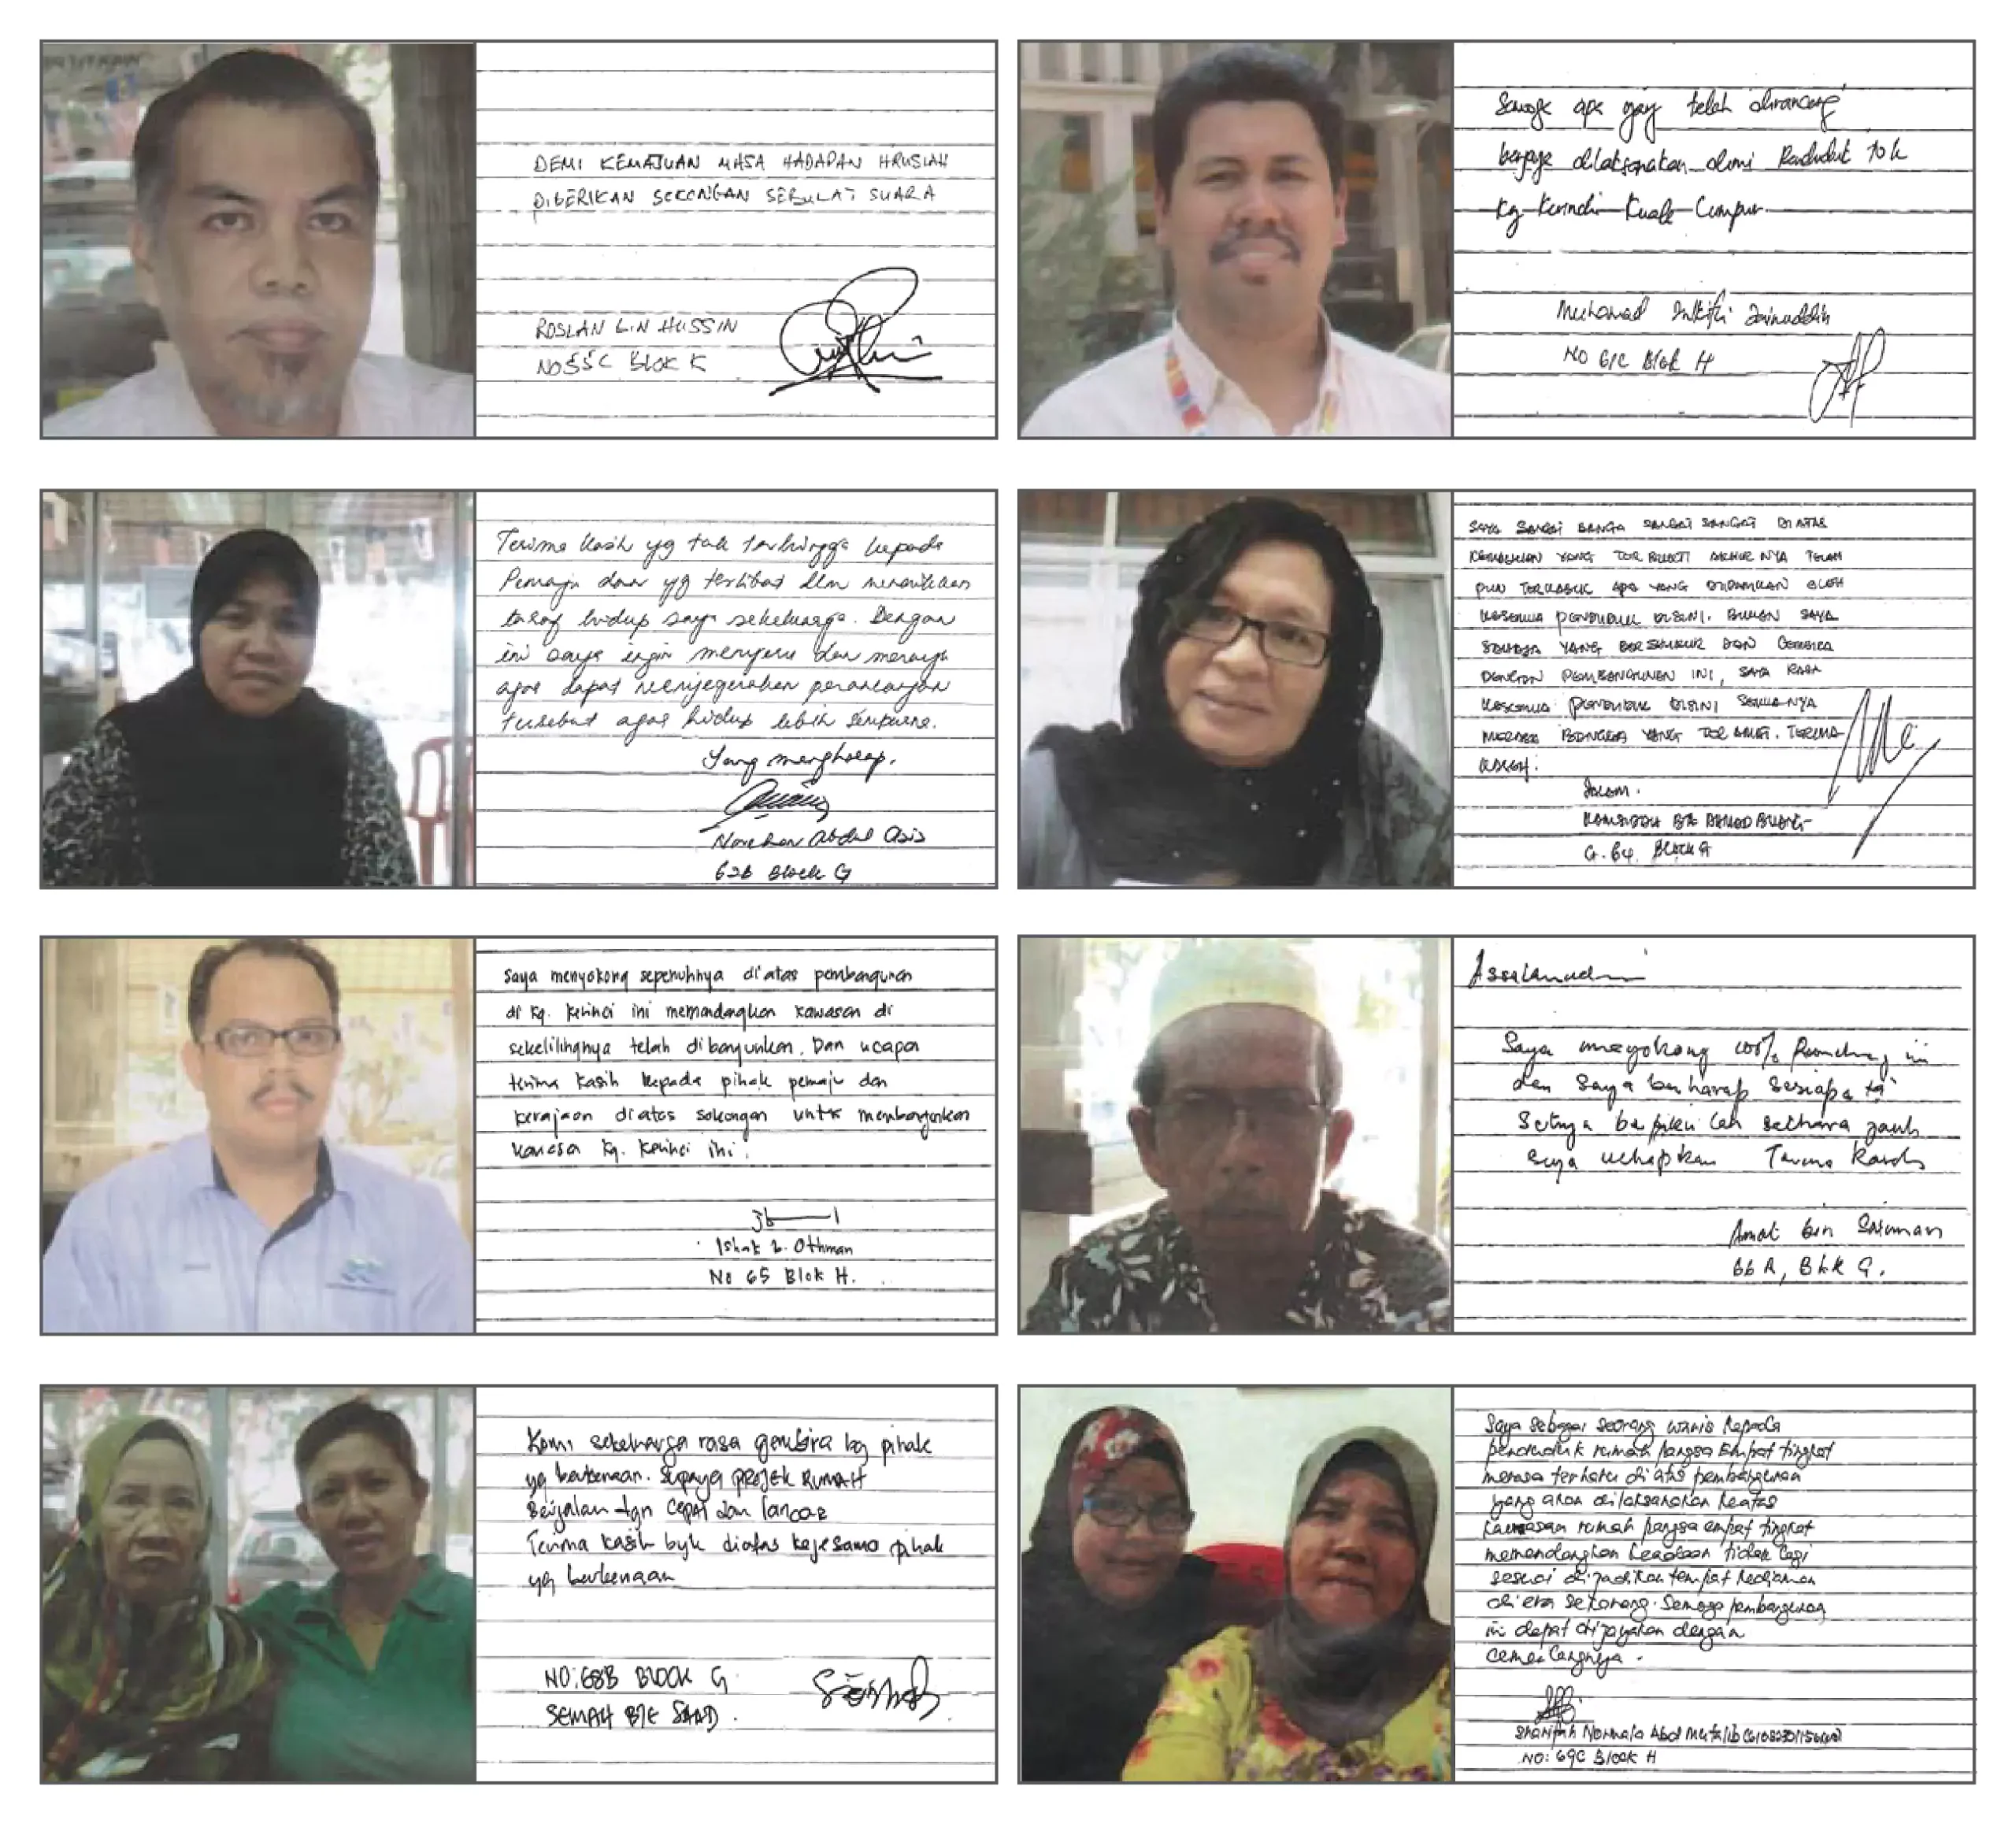 DEMI KEMAJUAN MASA HADAPAN HRUSLAH
DIBERIKAN SOKONGAN SEBULAT SUARA
ROSLAN BIN HUSSIN
NO 55C BLOK K
Semoga apa yang telah dirancang
berjaya dilaksanakan demi Penduduk
Kg Kerinchi Kuala Lumpur
Muhamad Zulkifli Zainuddin
NO 61C Blok H
Terima kasih yg tak terhingga kepada
Pemaju dan yg terlibat dlm menaikkan
taraf hidup saya sekeluarga. Dengan
ini saya ingin menyeru dan
agar dapat menyegerakan perancangan
tersebut agar hidup lebih sempurna.
Yang mengharap,
Norehan Abdul Asis
62B Block G
SAYA SANGAT BANGGA SANGAT SANGAT DI ATAS
KEMAJUAN YANG TERBUKTI AKHIRNYA TELAH
PUN TERMASUK APA YANG DIIDAMKAN OLEH
KESEMUA PENDUDUK DISINI. BUKAN SAYA
SAHAJA YANG BERSYUKUR DAN GEMBIRA
DENGAN PEMBANGUNAN INI, SAYA RASA
KESEMUA PENDUDUK DISINI SEMUANYA
MERASA BANGGA YANG TERAMAT. TERIMA
KASIH.
SALAM.
BTE AHMAD BUANG
G.64. BLOCK G
Saya menyokong sepenuhnya di atas pembangunan
di Kg. Kerinci ini memandangkan kawasan di
sekelilingnya telah dibangunkan. Dan ucapan
terima kasih kepada pihak pemaju dan
kerajaan diatas sokongan untk membangunkan
kawasa Kg. Kerinci ini.
Ishak b. Othman
No 65 Blok H.
Saya meyokong 100% Runding ini
dan Saya berharap sesiapa ta'
Setuju bepikir lah sechara jauh
Saya uchapkan Terima Kaseh
Amat bin Saiman
66 A, Blk G.
Kami sekeluarga rasa gembira kg pihak
yg berkenaan. Supaya PROJEK RUMAH
Berjalan dgn cepat dan lancar
Terima kasih byk diatas kejesama pihak
yg berkenaan
NO: 68B BLOCK G
SEMAH BTE SAAD.
Saya sebagai seorang waris kepada
penduduk rumah pangsa empat tingkat
merasa terharu di atas pembangunan
yang akan dilaksanakan keatas
kawasan rumah pangsa empat tingkat
memandangkan keadaan tidak lagi
sesuai dijadikan tempat kediaman
di era sekarang. Semoga pembangunan
ini dapat dijayakan dengan
cemerlangnya.
Sharifah Normala Abd Mutalib
NO: 69C Block H